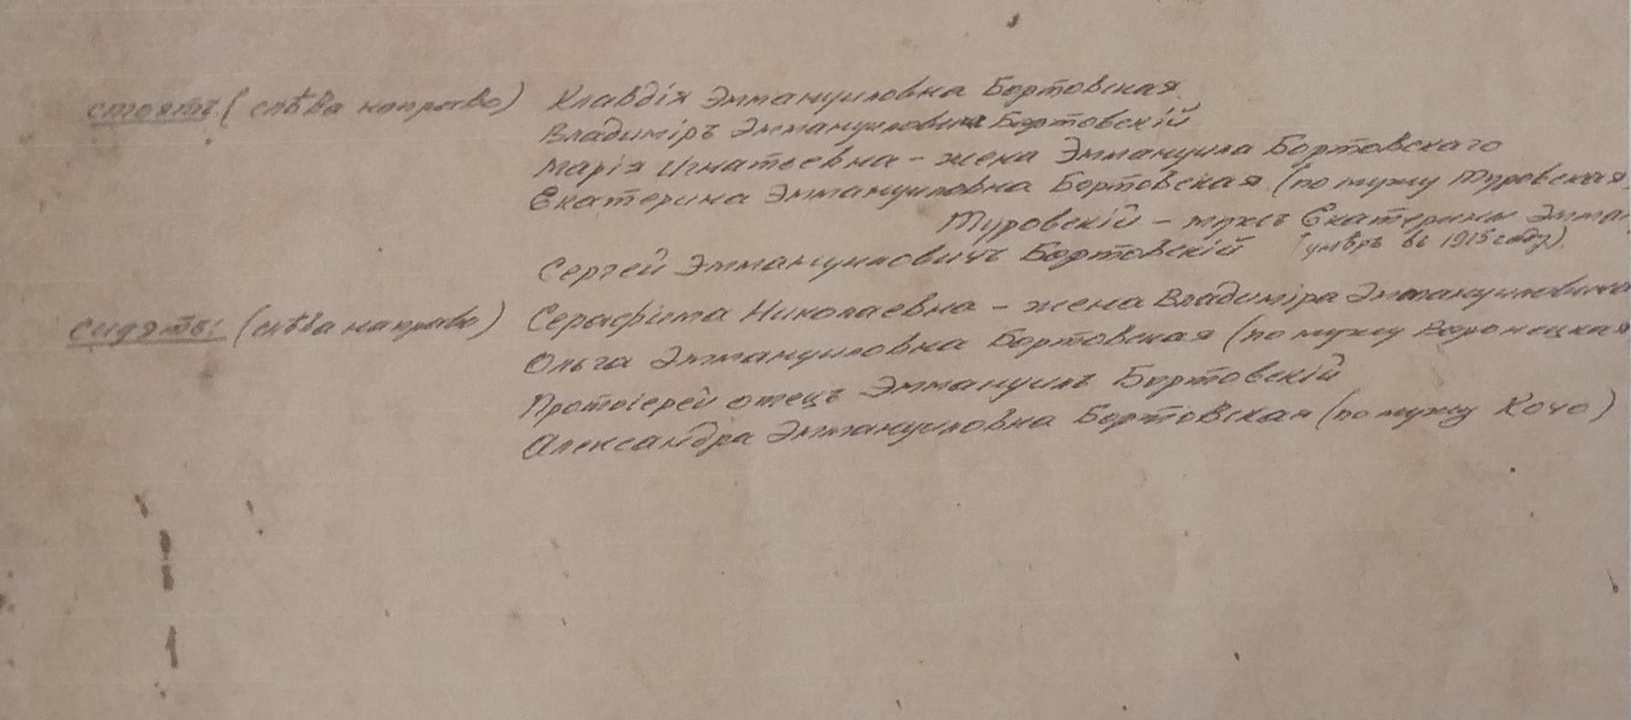 стоятъ: (слѣва направо) Клавдія Эммануиловна Бортовская
Владиміръ Эммануиловичъ Бортовскій
Марія Игнатьевна – жена Эммануила Бортовскаго
Екатерина Эммануиловна Бортовская (по мужу Туровская)
Туровскій – мужъ Екатерины Эмма
(умеръ въ 1915 году).
Сергей Эммануиловичъ Бортовскій
сидятъ: (слѣва направо) Серафима Николаевна – жена Владиміра Эммануиловича
Ольга Эммануиловна Бортовская (по мужу Воронецкая
Протоіерей отецъ Эммануилъ Бортовскій
Александра Эммануиловна Бортовская (по мужу Кочо)